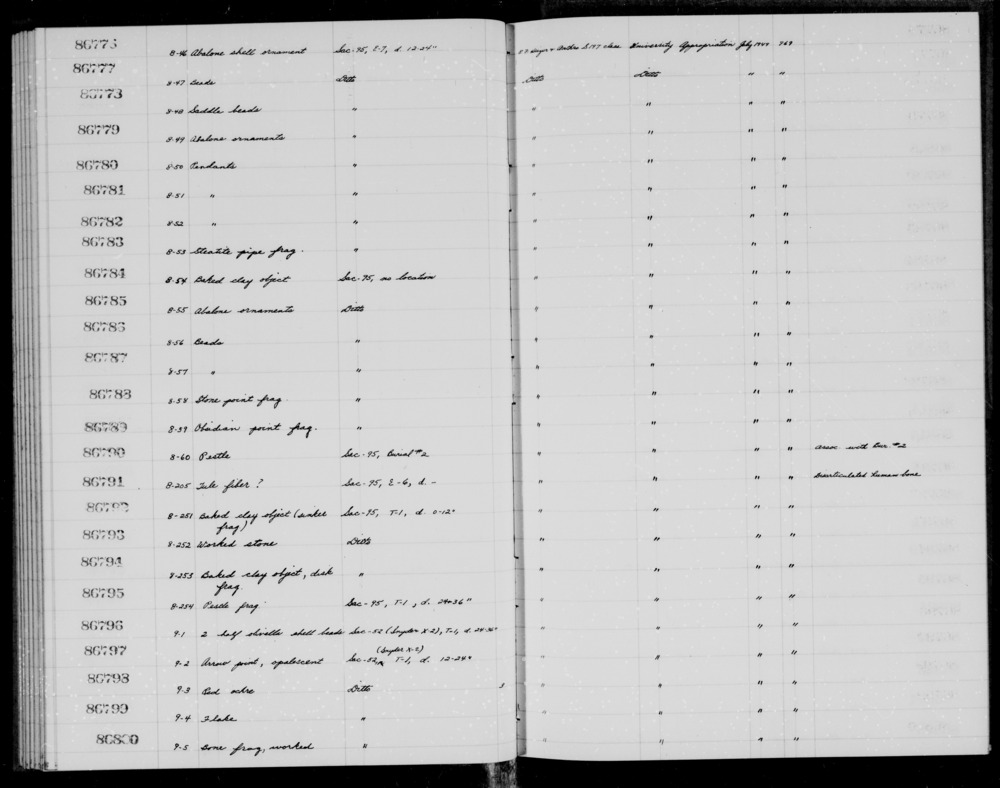 86776 8-46 Abalone shell ornament Sac-95, E-7, d. 12-24" University Appropriation July 1949 769
86777 8-47 Beads Ditto Ditto Ditto " "
86778 8-48 Saddle beads " " " " "
86779 8-49 Abalone ornaments " " " " "
86780 8-50 Pendants " " " " "
86781 8-51 " " " " " "
86782 8-52 " " " " " "
86783 8-53 Steatite pipe frag. " " " " "
86784 8-54 Baked clay object Sac-95, no location " " " "
86785 8-55 Abalone ornaments Ditto " " " "
86786 8-56 Beads " " " " "
86787 8-57 " " " " " "
86788 8-58 Stone point frag. " " " " "
86789 8-59 Obsidian point frag. " " " " "
86790 8-60 Pestle Sac-95, burial #2 " " " " Assoc. with Bur. #2
86791 8-205 Tule fiber? Sac-95, E-6, d. - " " " " Disarticulated human bone
86792 8-251 Baked clay object (sinker Sac-95, T-1, d. 0-12" " " " "
frag)
86793 8-252 Worked stone Ditto " " " "
86794 8-253 Baked clay object, disk " " " " "
frag.
86795 8-254 Pestle frag. Sac-95, T-1, d. 24-36" " " " "
86796 9-1 2 half olivella shell beads Sac-52 (Snyder X-2), T-1, d. 24-36" " " " "
(Snyder X-2)
86797 9-2 Arrow point, opalescent Sac-52, T-1, d. 12-24" " " " "
86798 9-3 Red ochre Ditto 3 " " " "
86799 9-4 Flake " " " " "
86800 9-5 Bone frag, worked " " " " "